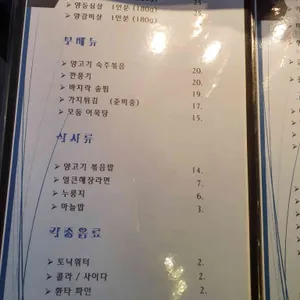 양등심살 1인분 (180g) 25.
양갈비살 1인분 (180g)
보메뉴
양고기 숙주볶음 20.
깐풍기 20.
바지락 술찜 19.
가지튀김 (준비중) 17.
모듬 어묵탕 15.
식사류
양고기 볶음밥 14.
얼큰해장라면 7.
누룽지 6.
마늘밥 3.
각종음료
토닉워터 2.
콜라 / 사이다 2.
환타 파인 2.